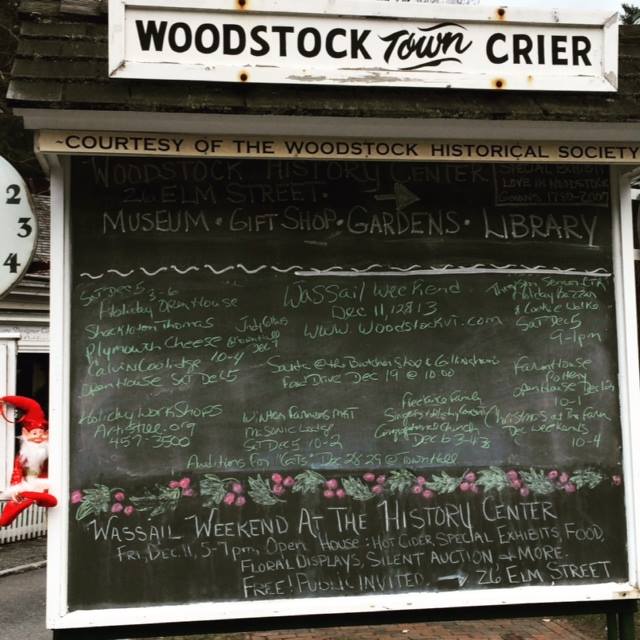 WOODSTOCK Town CRIER
~COURTESY OF THE WOODSTOCK HISTORICAL SOCIETY
WOODSTOCK HISTORY CENTER
26 ELM STREET.
SPECIAL EXHIBIT
LOVE IN WOODSTOCK
MUSEUM • GIFT SHOP • GARDENS • LIBRARY
2
3
4
Sat Dec 5 3-6
Holiday Open House
Shackleton Thomas
Plymouth Cheese
Calvin Coolidge 10-4
Open House Sat Dec 5
Holiday Workshops
Artistree.org
457-3500
Wassail Weekend
Dec 11, 12 & 13
www.woodstockvt.com
Santa @ the
Dec 19 @ 10:00
Winter Farmers MKT
Masonic Lodge
Sat Dec 5 10-2
Dec 6
Auditions for "Cats" Dec @ Town Hall
Holiday Bazaar
Sat Dec 5
9-1pm
Farmhouse
Pottery
Open House
10-1
Christmas at the Farm
Dec weekends
10-4
WASSAIL WEEKEND AT THE HISTORY CENTER
FRI, DEC. 11, 5-7pm, OPEN HOUSE: HOT CIDER, SPECIAL EXHIBITS, FOOD,
FLORAL DISPLAYS, SILENT AUCTION + MORE.
FREE! PUBLIC INVITED. → 26 ELM STREET